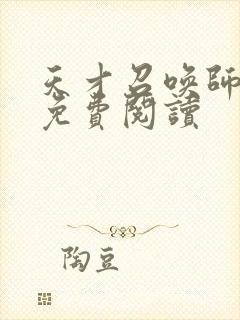 天才召喚師
免費閱讀
陶豆